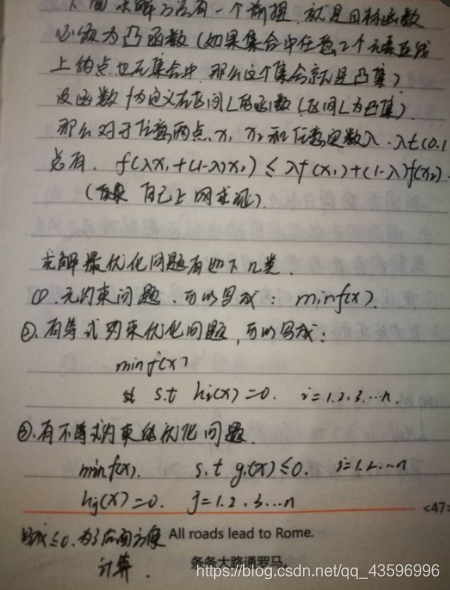 下面求解方法有一个前提,就是目标函数
必须为凸函数(如果集合中任意2个元素连线
上的点也在集合中,那么这个集合就是凸集)
设函数f为定义在区间L的函数(区间L为凸集)
那么对于任意两点x₁ x₂和任意实数λ.λ∈(0.1
总有. f(λx₁+(1-λ)x₂) ≤ λf(x₁)+(1-λ)f(x₂).
自己上网求证).
求解最优化问题有如下几类.
①.无约束问题.可以写成: minf(x).
②.有等式约束优化问题,可以写成:
minf(x)
s.t hi(x)=0. i=1.2.3...n.
③.有不等式约束的优化问题.
minf(x). s.t gi(x)≤0. i=1.2...n
hj(x)=0. j=1.2.3...n
<47>
≤0.为了后面方便 All roads lead to Rome.
计算. 条条大路通罗马。
https://blog.csdn.net/qq_43596996